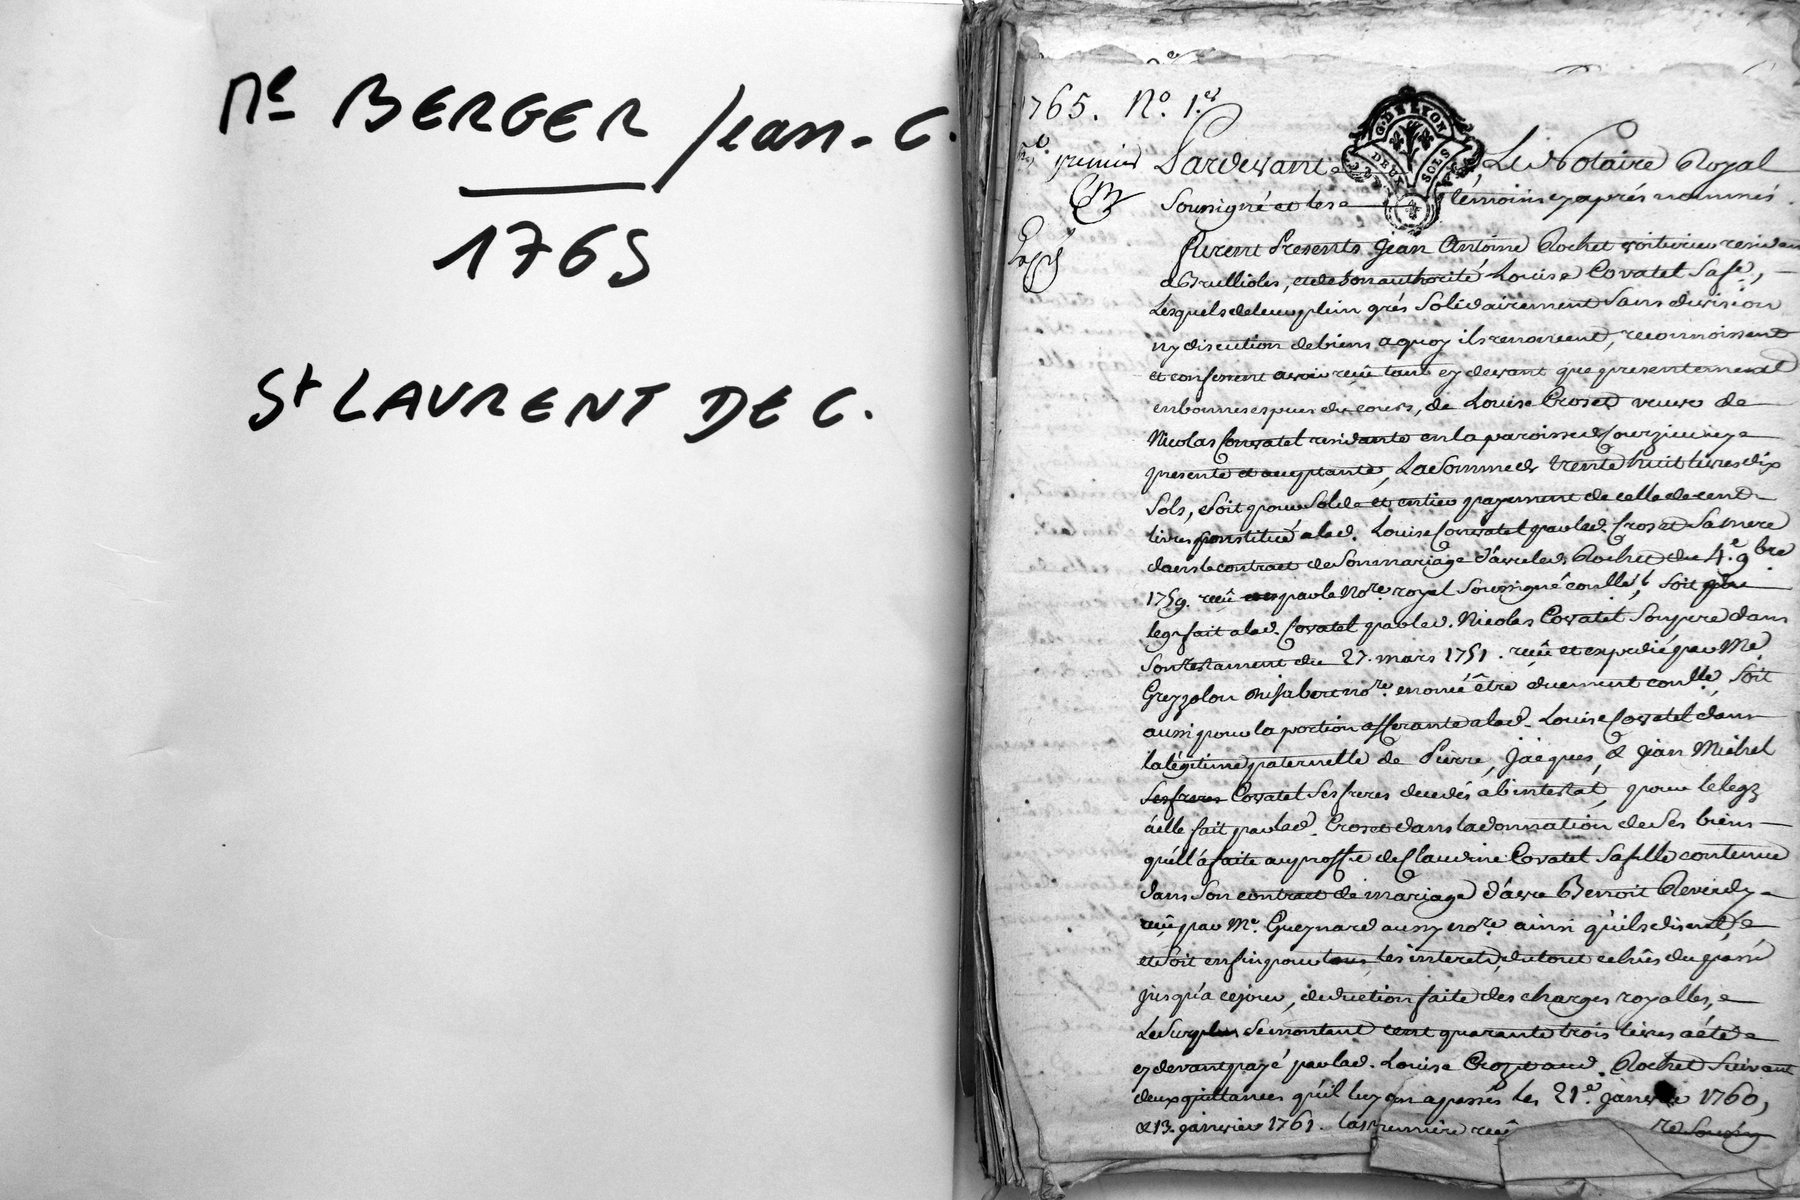 Me BERGER Jean-C.
1765
St LAURENT DE C.
1765. No. 1.er
premier
G. DE LYON
DEUX SOLS
Pardevant Le Notaire Royal
Soussigné et les témoins cy après nommés.
Furent Presents Jean Antoine Rochet voiturier resident
a Brullioles, et de son authorité Louise Covatel Safe,
Lesquels de leur plein grés Solidairement Sans division
ny discution de biens a quoy ils renoncent, reconnoissent
et confessent avoir reçû tant cy devant que presentement
en bonnes espices du cours, de Louise Croset veuve de
Nicolas Covatel residante en la paroisse de Courzieu icy
presente et acceptante, La Somme de trente huit livres dix
Sols, Soit pour Solde et entier payement de celle de cent
livres constitué a lad. Louise Covatel par lad. Croset Sa mere
dans le contract de Son mariage d'avec led. Rochet du 4.e 9bre
1759. reçû par le Nore. royal Soussigné conllé, Soit pour
legs fait a lad. Covatel par led. Nicolas Covatel Son pere dans
Son testament du 27. mars 1751. reçû et expedié par Me
nore. enoncé être duement conllé, Soit
aussi pour la portion afferante a lad. Louise Covatel dans
la légitime paternelle de Pierre, Jacques, & Jean Michel
Ses freres Covatel Ses freres decedés ab intestat, pour le legz
à elle fait par lad. Croset dans la donnation de Ses biens
qu'ell'a faite au proffit de Claudine Covatel Sa fille contenue
dans Son contract de mariage d'avec Benoit
reçû par Me. Gueynard aussy nore. ainsi qu'ils disent,
et Soit enfin pour tous les interets, du tout echûs du passé
jusqu'a ce jour, deduction faite des charges royalles,
Le Surplus Se montant cent quarante trois livres a été
cy devant payé par lad. Louise Crozet aud. Rochet Suivant
deux quittances qu'il luy en a passés les 21e. janvier 1760,
& 13. janvier 1761. la premiere reçû